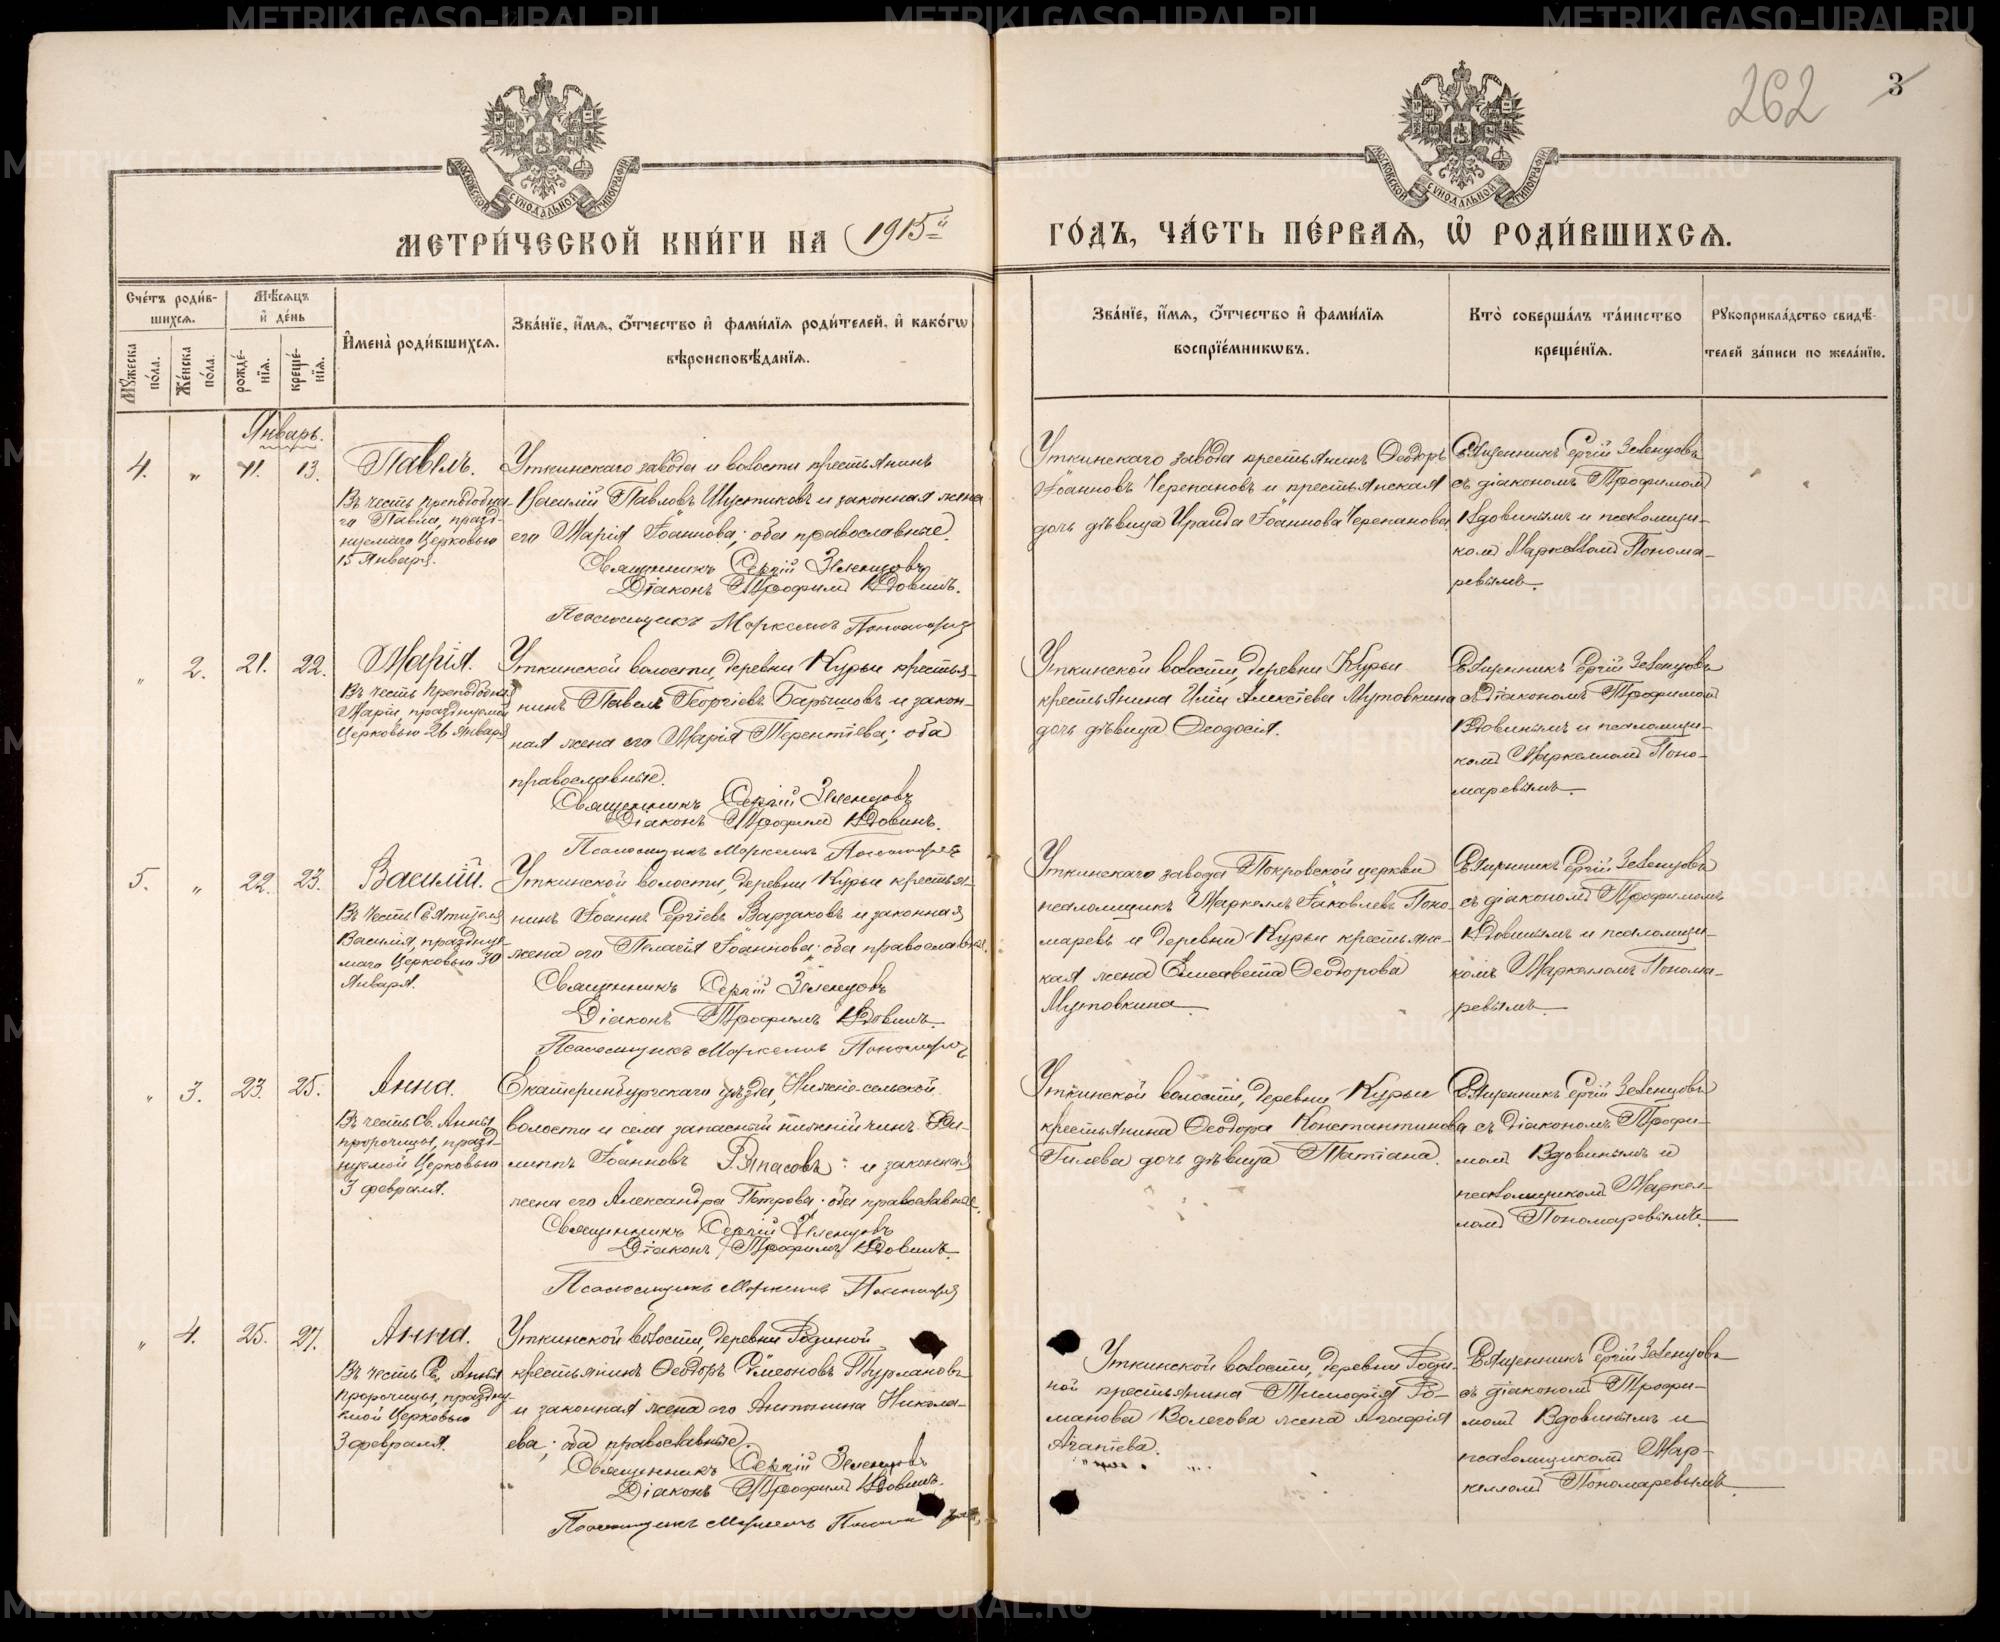 METRIKI.GASO-URAL.RU
262
3
МОСКОВСКОЙ СѴНОДАЛЬНОЙ ТИПОГРАФІИ
МОСКОВСКОЙ СѴНОДАЛЬНОЙ ТИПОГРАФІИ
МЕТРИ́ЧЕСКОЙ КНИ́ГИ НА 1915й
ГО́ДЪ, ЧА́СТЬ ПЕ́РВАѦ, Ѡ҆ РОДИ́ВШИХСѦ.
Сче́тъ роди́в-
шихся.
Мѣ́сяцъ
и҆ де́нь
Мꙋ́жеска по́ла.
Же́нска по́ла.
рожде́-
нїя.
креще́-
нїя.
И҆мена̀ роди́вшихся.
Зва́нїе, и҆́мя, ѻ҆́тчество и҆ фами́лїя роди́телей, и҆ како́гѡ
вѣроисповѣ́данїя.
Зва́нїе, и҆́мя, ѻ҆́тчество и҆ фами́лїя
воспрїе́мникѡвъ.
Кто̀ соверша́лъ та́инство
креще́нїя.
Рꙋкоприкла́дство свидѣ́-
телей за́писи по жела́нїю.
Январь.
4. " 11. 13. Павелъ.
Въ честь преподобна-
го Павла, празд-
нуемаго Церковью
15 Января.
Уткинскаго завода и волости крестьянинъ
Василій Павловъ Шустиковъ и законная жена
его Марія Іоаннова; оба православные.
Священникъ Сергій Зеленцовъ
Діаконъ Трофимъ Вдовинъ.
Псаломщикъ Маркеллъ Пономаревъ
Уткинскаго завода крестьянинъ Ѳеодоръ
Іоанновъ Черепановъ и крестьянская
дочь дѣвица Ираида Іоаннова Черепанова.
Священникъ Сергій Зеленцовъ
съ діакономъ Трофимомъ
Вдовинымъ и псаломщи-
комъ Маркелломъ Понома-
ревымъ.
" 2. 21. 22. Марія.
Въ честь преподобныя
Маріи, празднуемой
Церковью 26 Января
Уткинской волости, деревни Курьи крестья-
нинъ Павелъ Георгіевъ Барышовъ и закон-
ная жена его Марія Терентіева; оба
православные.
Священникъ Сергій Зеленцовъ
Діаконъ Трофимъ Вдовинъ.
Псаломщикъ Маркеллъ Пономаревъ
Уткинской волости, деревни Курьи
крестьянина Иліи Алексіева Мутовкина
дочь дѣвица Ѳеодосія.
Священникъ Сергій Зеленцовъ
съ діакономъ Трофимомъ
Вдовинымъ и псаломщи-
комъ Маркелломъ Поно-
маревымъ.
5. " 22. 23. Василій.
Въ честь Святителя
Василія, празднуе-
маго Церковью 30
Января.
Уткинской волости, деревни Курьи крестья-
нинъ Іоаннъ Сергіевъ Варзаковъ и законная
жена его Пелагія Іоаннова; оба православные.
Священникъ Сергій Зеленцовъ
Діаконъ Трофимъ Вдовинъ.
Псаломщикъ Маркеллъ Пономаревъ
Уткинскаго завода Покровской церкви
псаломщикъ Маркеллъ Іаковлевъ Поно-
маревъ и деревни Курьи крестьянс-
кая жена Елисавета Ѳеодорова
Мутовкина.
Священникъ Сергій Зеленцовъ
съ діакономъ Трофимомъ
Вдовинымъ и псаломщи-
комъ Маркелломъ Понома-
ревымъ.
" 3. 23. 25. Анна.
Въ честь Св. Анны
пророчицы, празд-
нуемой Церковью
3 февраля.
Екатеринбургскаго уѣзда, Нижне-сельской
волости и села запасный нижній чинъ Фи-
липпъ Іоанновъ Ряпасовъ: и законная
жена его Александра Петрова; оба православные.
Священникъ Сергій Зеленцовъ
Діаконъ Трофимъ Вдовинъ.
Псаломщикъ Маркеллъ Пономаревъ
Уткинской волости, деревни Курьи
крестьянина Ѳеодора Константинова
Гилева дочь дѣвица Татіана.
Священникъ Сергій Зеленцовъ
съ діакономъ Трофи-
момъ Вдовинымъ и
псаломщикомъ Маркел-
ломъ Пономаревымъ.
" 4. 25. 27. Анна.
Въ честь Св. Анны
пророчицы, праздну-
емой Церковью
3 февраля.
Уткинской волости, деревни Родиной
крестьянинъ Ѳеодоръ Симеоновъ Турлановъ
и законная жена его Антонина Никола-
ева; оба православные.
Священникъ Сергій Зеленцовъ
Діаконъ Трофимъ Вдовинъ.
Псаломщикъ Маркеллъ
Уткинской волости, деревни Роди-
ной крестьянина Тимофія Ро-
манова Волегова жена Агафія
Агапіева.
Священникъ Сергій Зеленцовъ
съ діакономъ Трофи-
момъ Вдовинымъ и
псаломщикомъ Мар-
келломъ Пономаревымъ.